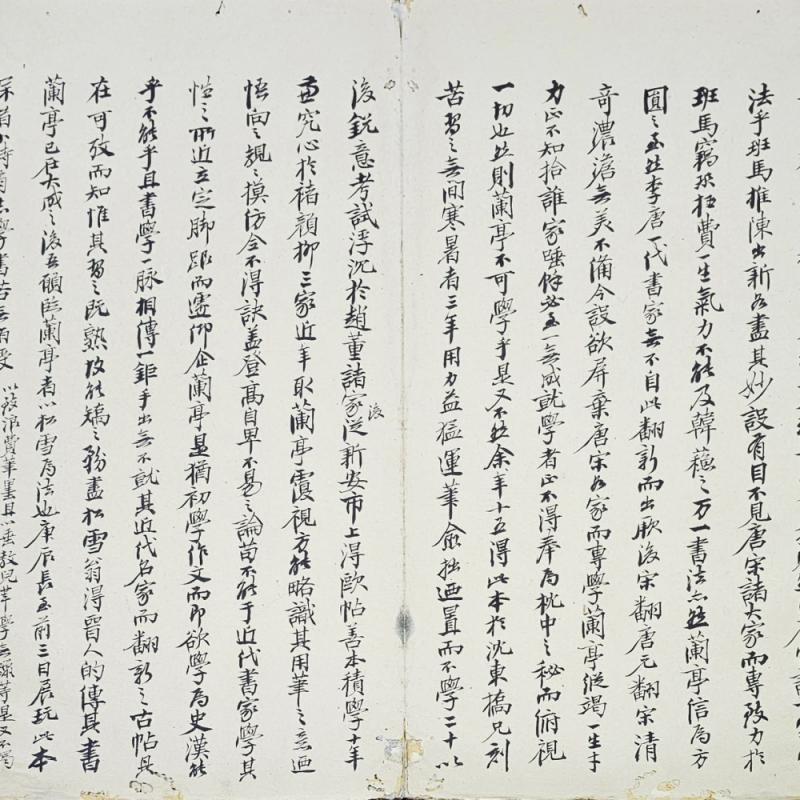 法乎班馬推陳出新各盡其妙設有目不見唐宋諸大家而專致力於
班馬竊恐枉費一生氣力不能及韓蘇之万一書法亦然蘭亭信為方
圓之至然李唐一代書家無不自此翻新而出厥後宋翻唐元翻宋清
奇濃澹無美不備今設欲屏棄唐宋各家而專學蘭亭縱竭一生才
力正不知拾誰家唾餘必至一無成就學者正不得奉為枕中之秘而俯視
一切也然則蘭亭不可學乎是又不然余年十五得此本於沈東橋兄刻
苦習之無間寒暑者三年用力益猛運筆愈拙迺置而不學二十以
後銳意考試浮沉於趙董諸家後從新安市上得歐帖善本積學十年
更究心於褚顏柳三家近年取蘭亭覆視方能略識其用筆之意迺
悟向之規之摸仿全不得訣蓋登高自卑不易之論苟不能于近代書家學其
性之所近立定脚跟而遽仰企蘭亭是猶初學作文而即欲學為史漢能
乎不能乎且書學一脉相傳一鉅手出無不就其近代名家而翻新之古帖具
在可攷而知惟其習之既熟故能矯之務盡松雪翁得晉人的傳其書
蘭亭已在大成之後吾願臨蘭亭者以松雪為法也庚辰長至前三日展玩此本